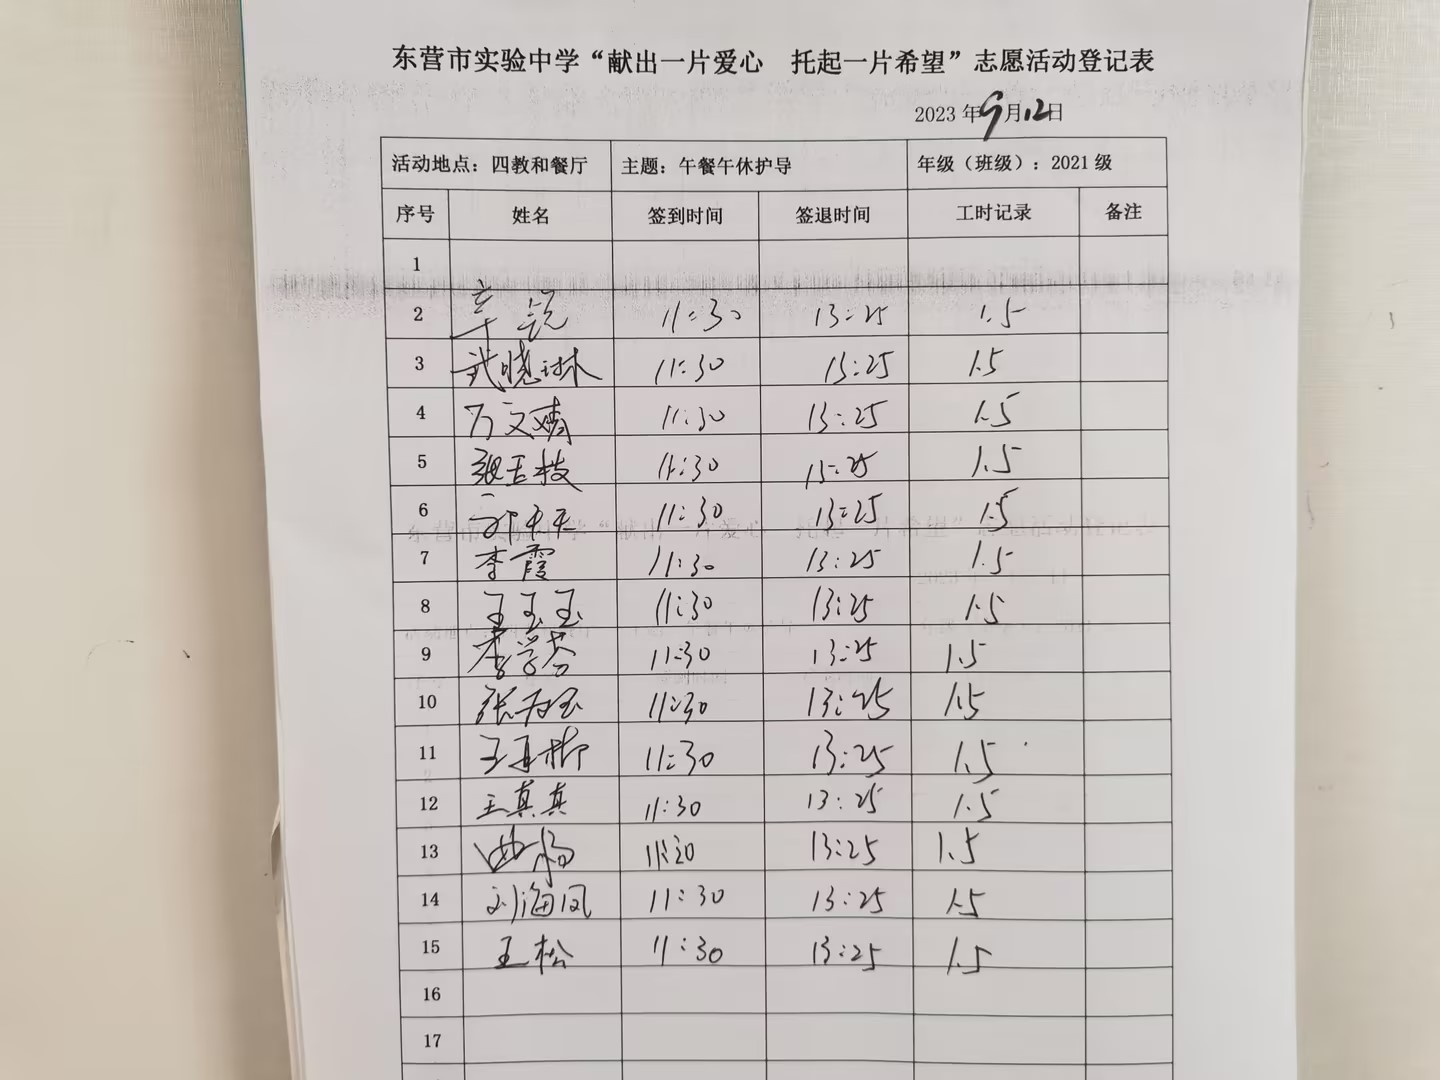 东营市实验中学“献出一片爱心 托起一片希望”志愿活动登记表
2023 年 9 月 12 日
活动地点：四教和餐厅 主题：午餐午休护导 年级（班级）：2021 级
序号 姓名 签到时间 签退时间 工时记录 备注
1
2 11:30 13:25 1.5
3 武晓琳 11:30 13:25 1.5
4 万文婧 11:30 13:25 1.5
5 张玉枝 11:30 13:25 1.5
6 11:30 13:25 1.5
7 李霞 11:30 13:25 1.5
8 王玉玉 11:30 13:25 1.5
9 李学芬 11:30 13:25 1.5
10 11:30 13:25 1.5
11 11:30 13:25 1.5
12 王真真 11:30 13:25 1.5
13 曲杨 11:30 13:25 1.5
14 刘海凤 11:30 13:25 1.5
15 王松 11:30 13:25 1.5
16
17